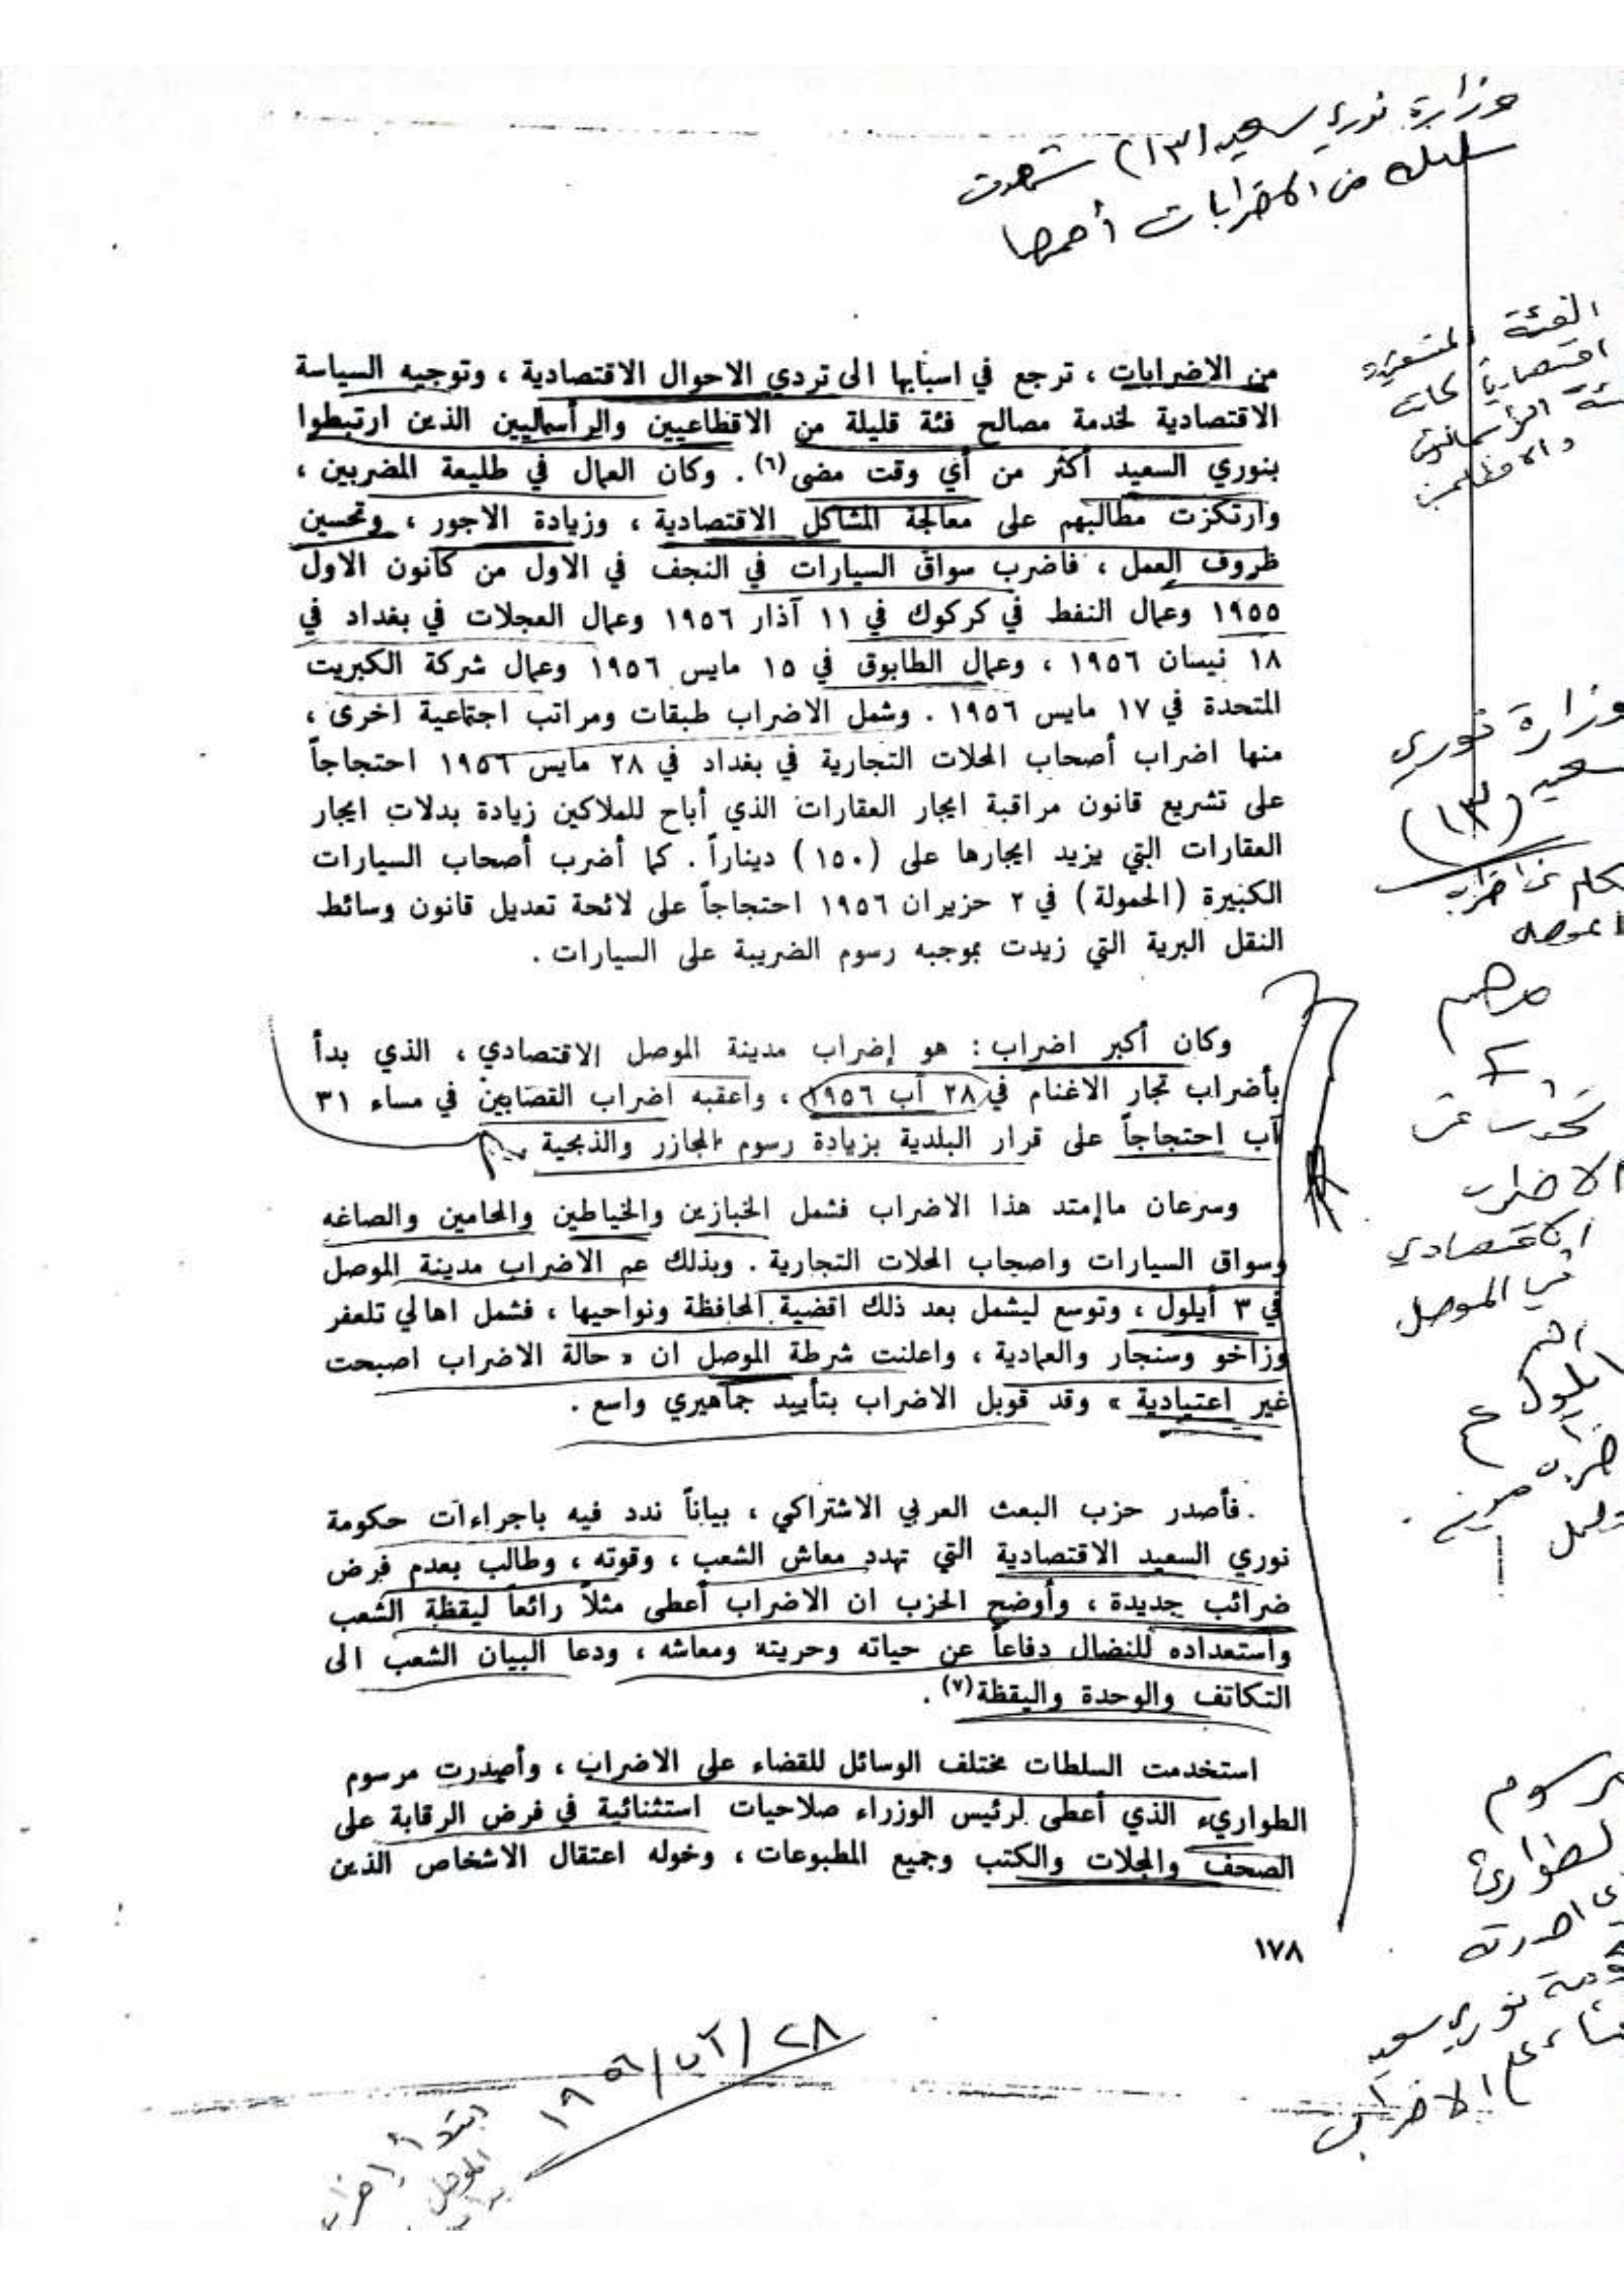 وزارة نوري سعيد (١٣) شهدت
سلسلة من الاضرابات أهمها
من الاضرابات ، ترجع في اسبابها الى تردي الاحوال الاقتصادية ، وتوجيه السياسة
الاقتصادية لخدمة مصالح فئة قليلة من الاقطاعيين والرأسماليين الذين ارتبطوا
بنوري السعيد أكثر من أي وقت مضى(٦) . وكان العمال في طليعة المضربين ،
وارتكزت مطالبهم على معالجة المشاكل الاقتصادية ، وزيادة الاجور ، وتحسين
ظروف العمل ، فاضرب سواق السيارات في النجف في الاول من كانون الاول
١٩٥٥ وعمال النفط في كركوك في ١١ آذار ١٩٥٦ وعمال العجلات في بغداد في
١٨ نيسان ١٩٥٦ ، وعمال الطابوق في ١٥ مايس ١٩٥٦ وعمال شركة الكبريت
المتحدة في ١٧ مايس ١٩٥٦ . وشمل الاضراب طبقات ومراتب اجتماعية اخرى ،
منها اضراب أصحاب المحلات التجارية في بغداد في ٢٨ مايس ١٩٥٦ احتجاجاً
على تشريع قانون مراقبة ايجار العقارات الذي أباح للملاكين زيادة بدلات ايجار
العقارات التي يزيد ايجارها على (١٥٠) ديناراً . كما أضرب أصحاب السيارات
الكبيرة (الحمولة) في ٢ حزيران ١٩٥٦ احتجاجاً على لائحة تعديل قانون وسائط
النقل البرية التي زيدت بموجبه رسوم الضريبة على السيارات .
وكان أكبر اضراب : هو إضراب مدينة الموصل الاقتصادي ، الذي بدأ
بأضراب تجار الاغنام في ٢٨ آب ١٩٥٦ ، واعقبه اضراب القصابين في مساء ٣١
آب احتجاجاً على قرار البلدية بزيادة رسوم المجازر والذبحية
وسرعان ماإمتد هذا الاضراب فشمل الخبازين والخياطين والمحامين والصاغه
وسواق السيارات واصحاب المحلات التجارية . وبذلك عم الاضراب مدينة الموصل
في ٣ أيلول ، وتوسع ليشمل بعد ذلك اقضية المحافظة ونواحيها ، فشمل اهالي تلعفر
وزاخو وسنجار والعمادية ، واعلنت شرطة الموصل ان « حالة الاضراب اصبحت
غير اعتيادية » وقد قوبل الاضراب بتأييد جماهيري واسع .
فأصدر حزب البعث العربي الاشتراكي ، بياناً ندد فيه باجراءات حكومة
نوري السعيد الاقتصادية التي تهدد معاش الشعب ، وقوته ، وطالب بعدم فرض
ضرائب جديدة ، وأوضح الحزب ان الاضراب أعطى مثلاً رائعاً ليقظة الشعب
واستعداده للنضال دفاعاً عن حياته وحريته ومعاشه ، ودعا البيان الشعب الى
التكاتف والوحدة واليقظة(٧) .
استخدمت السلطات مختلف الوسائل للقضاء على الاضراب ، وأصدرت مرسوم
الطواريء الذي أعطى لرئيس الوزراء صلاحيات استثنائية في فرض الرقابة على
الصحف والمجلات والكتب وجميع المطبوعات ، وخوله اعتقال الاشخاص الذين
١٧٨
وزارة نوري
سعيد (١٣)
مهم
تحدث عن
الاضراب
الاقتصادي
في الموصل
نوري سعيد
الاضراب
٢٨/آب/١٩٥٦
ابتدأ اضراب
الموصل